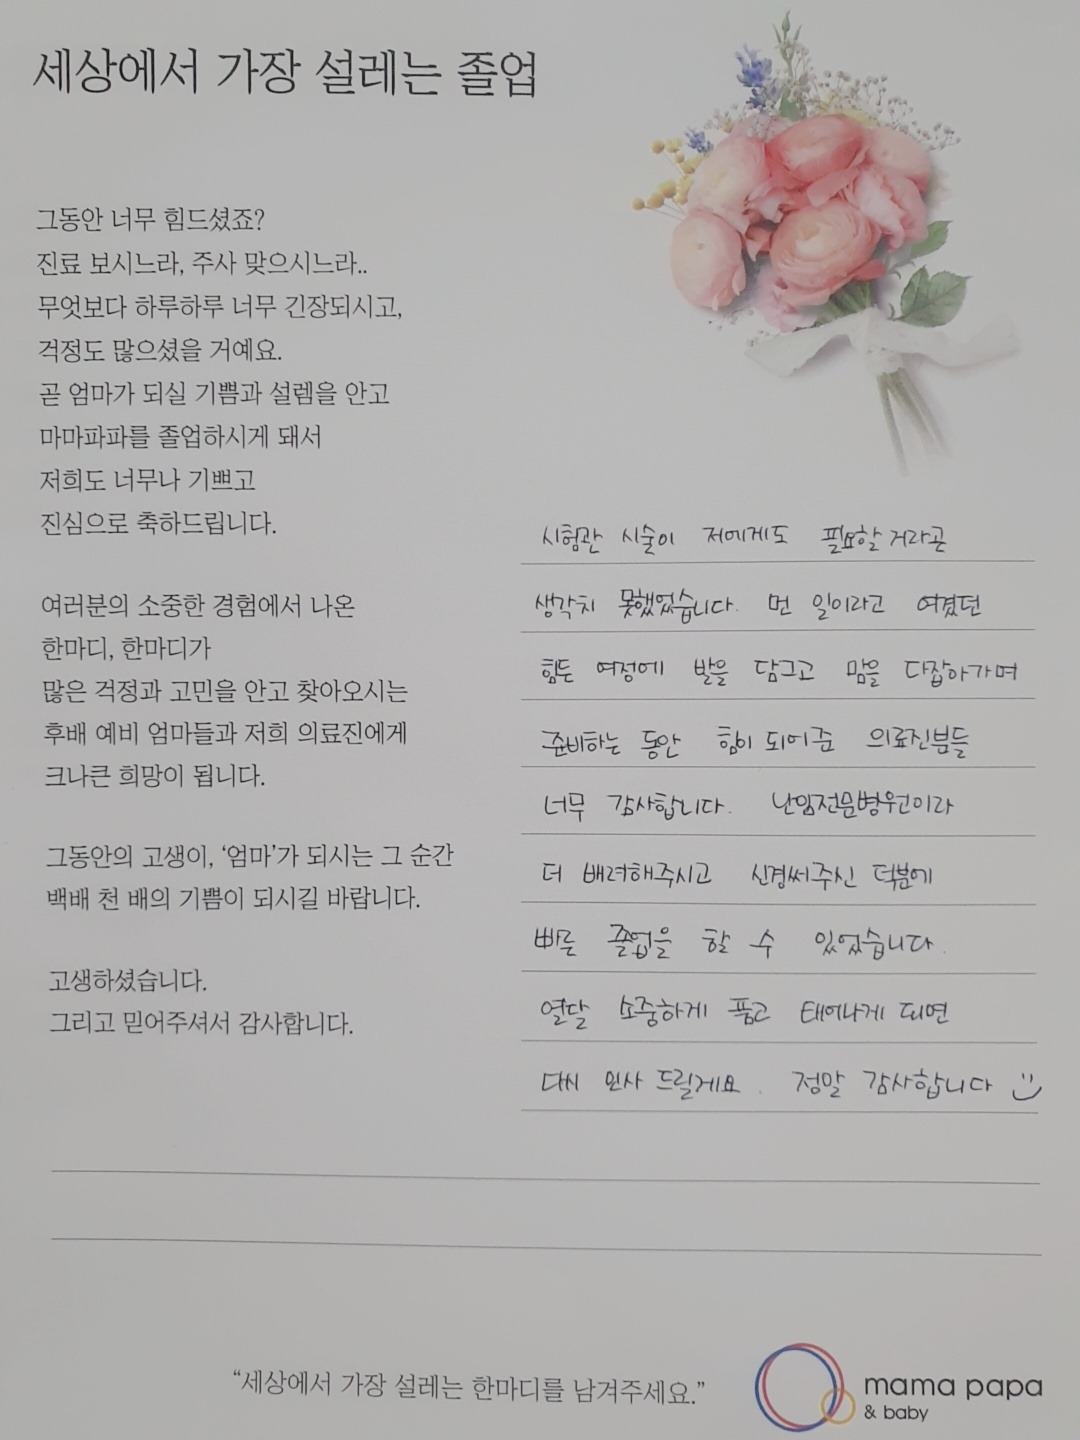 세상에서 가장 설레는 졸업
그동안 너무 힘드셨죠?
진료 보시느라, 주사 맞으시느라..
무엇보다 하루하루 너무 긴장되시고,
걱정도 많으셨을 거예요.
곧 엄마가 되실 기쁨과 설렘을 안고
마마파파를 졸업하시게 돼서
저희도 너무나 기쁘고
진심으로 축하드립니다.
여러분의 소중한 경험에서 나온
한마디, 한마디가
많은 걱정과 고민을 안고 찾아오시는
후배 예비 엄마들과 저희 의료진에게
크나큰 희망이 됩니다.
그동안의 고생이, ‘엄마’가 되시는 그 순간
백배 천 배의 기쁨이 되시길 바랍니다.
고생하셨습니다.
그리고 믿어주셔서 감사합니다.
시험관 시술이 저에게도 필요할 거라곤
생각치 못했었습니다. 먼 일이라고 여겼던
힘든 여정에 발을 담그고 맘을 다잡아가며
준비하는 동안 힘이 되어준 의료진분들
너무 감사합니다. 난임전문병원이라
더 배려해주시고 신경써주신 덕분에
빠른 졸업을 할 수 있었습니다.
열달 소중하게 품고 태어나게 되면
다시 인사 드릴게요. 정말 감사합니다
“세상에서 가장 설레는 한마디를 남겨주세요.”
mama papa
& baby